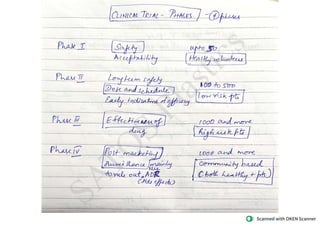 CLINICAL TRIAL - PHASES - 4 phases
Phase I Safety upto 50
Acceptability Healthy volunteers
Phase II Longterm safety 100 to 500
Dose and schedule Low risk pts
Early indication of efficacy
Phase III Effectiveness of 1000 and more
drug High risk pts
Phase IV Post marketing 1000 and more
surveillance mainly Community based
to rule out ADR (both healthy + pts)
(Side effects)
Scanned with OKEN Scanner